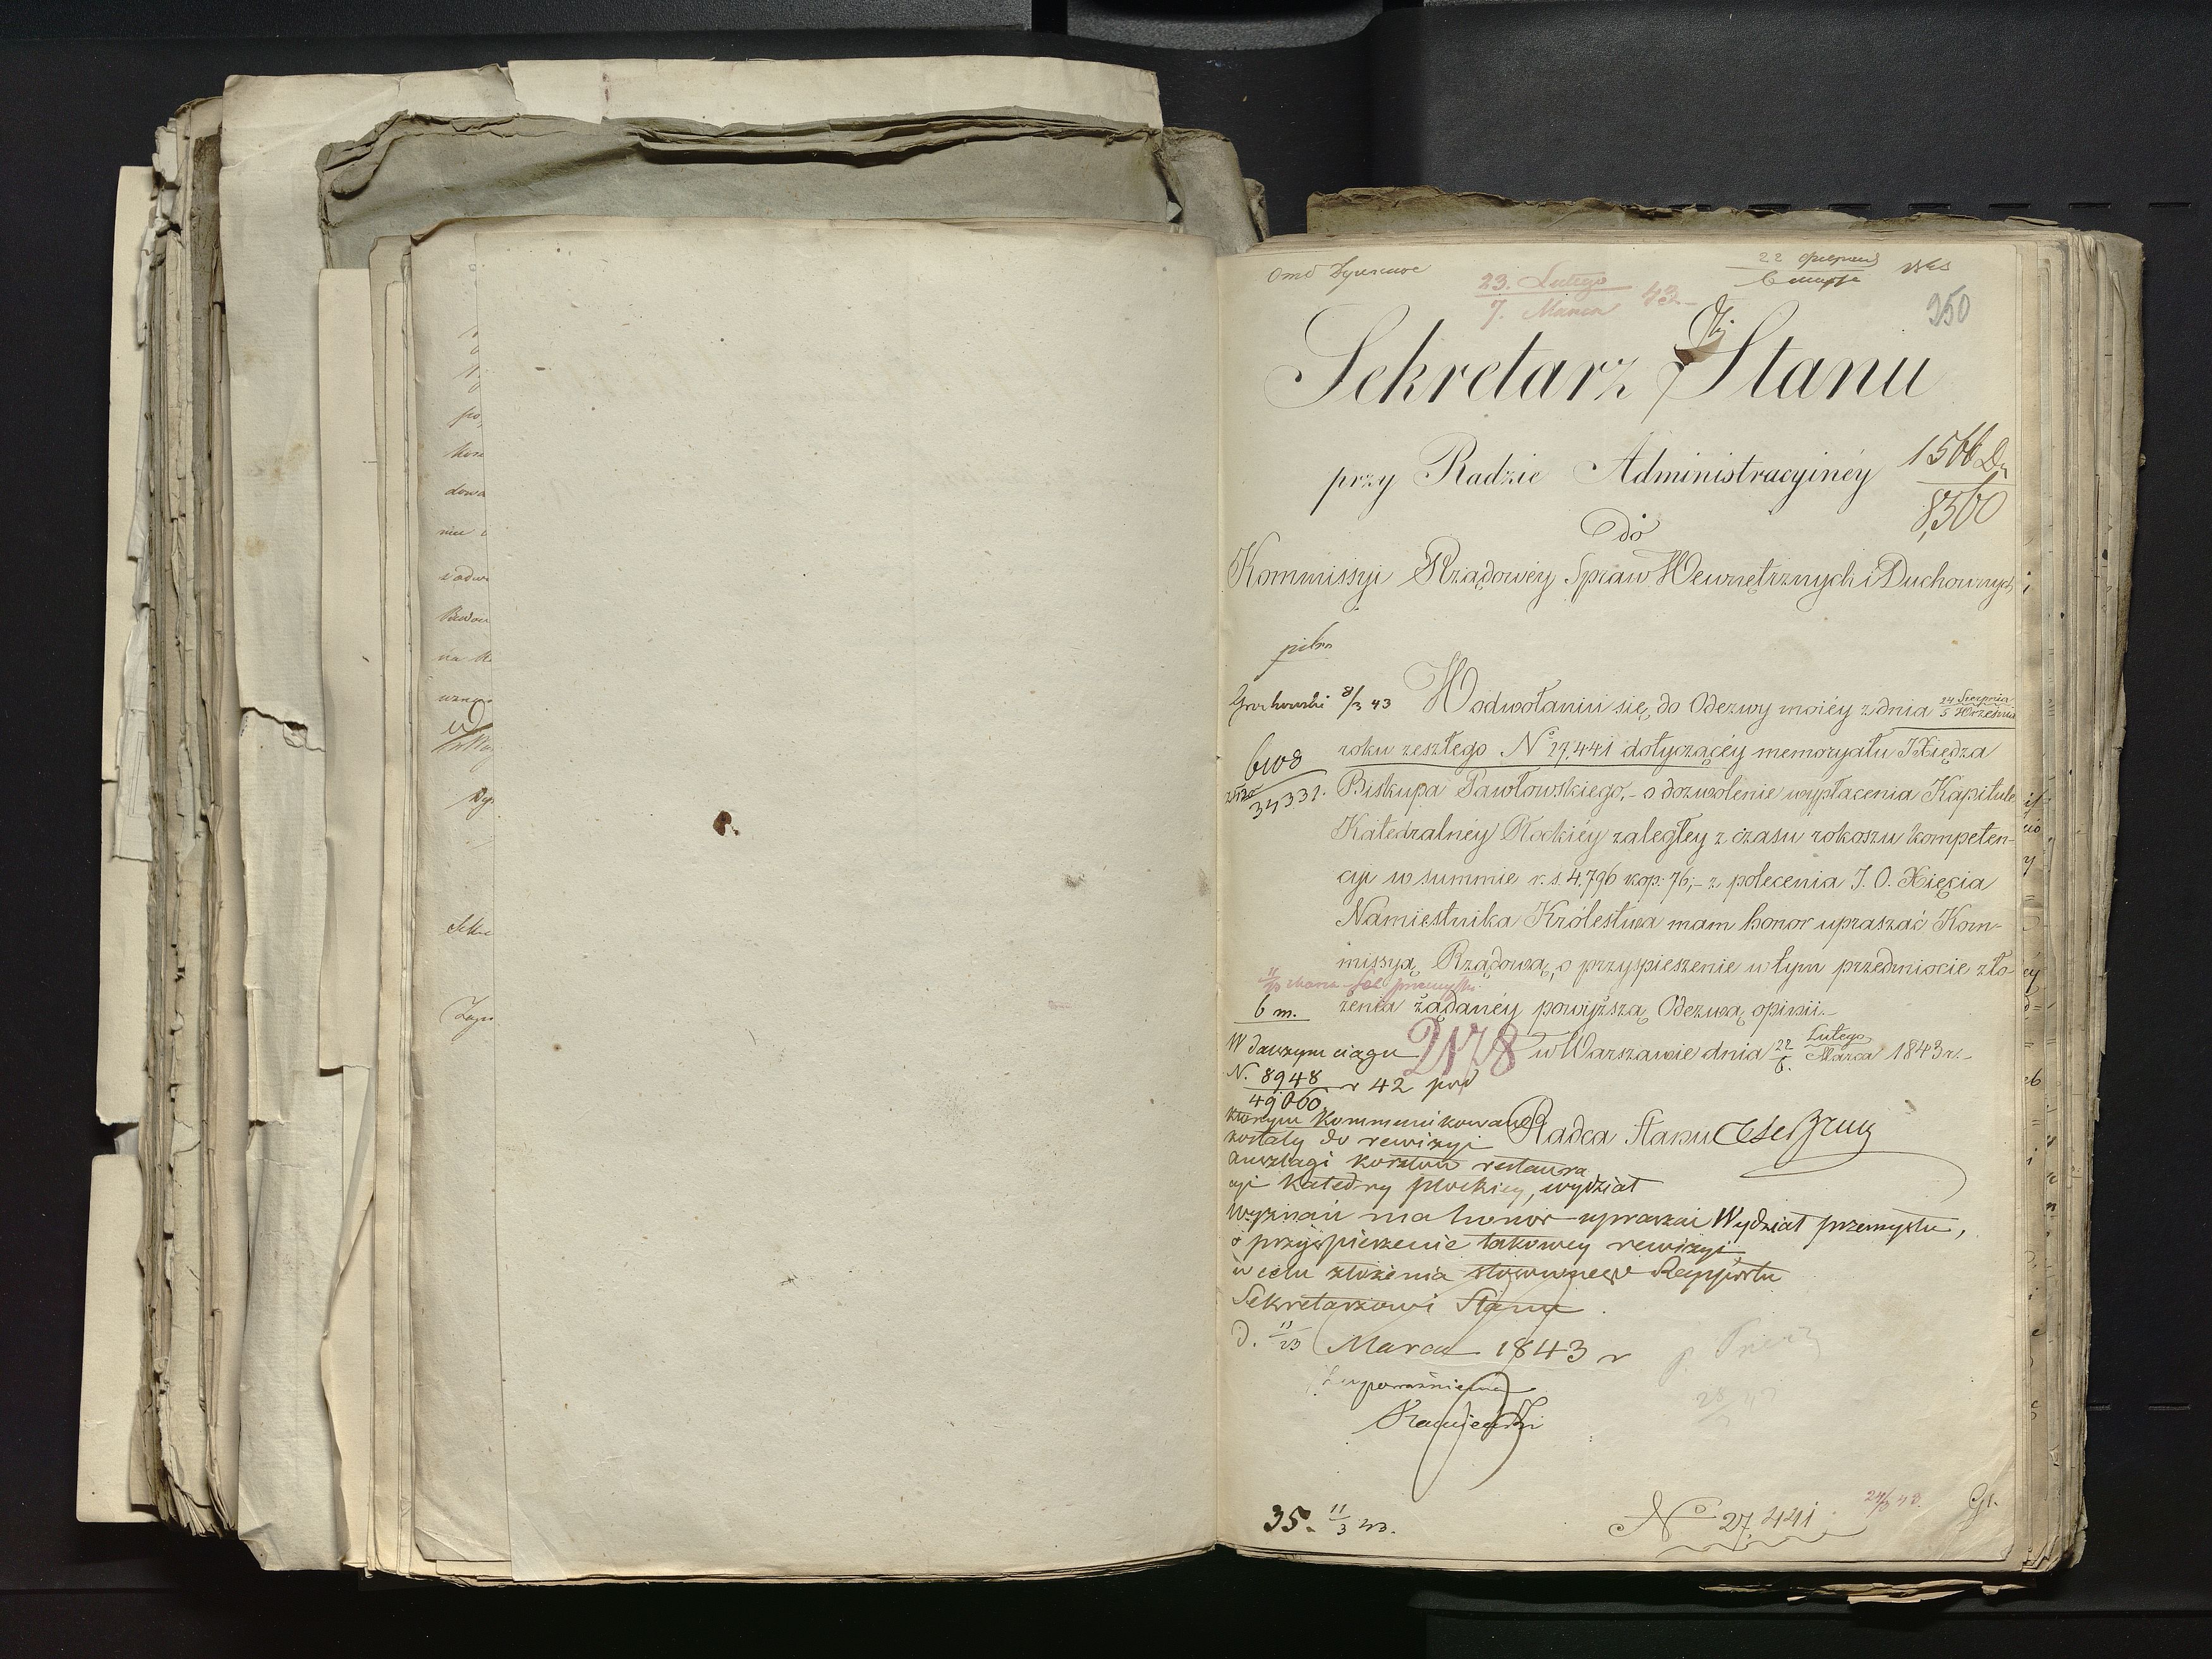 23. Lutego
7. Marca 43
22
6 марта
350
Sekretarz Stanu
przy Radzie Administracyinéy
1566
8,560
do
Kommissyi Rządowéy Spraw Wewnętrznych i Duchownych
pilno
Grochowski 8/3 43
W odwołaniu się do Odezwy moiéy z dnia 24 Sierpnia / 5 Września
roku zeszłego No 27,441 dotyczącéy memoryału JXiędza
34331.
Biskupa Pawłowskiego,- o dozwolenie wypłacenia Kapitule
Katedralnéy Płockiéy zaległey z czasu rokoszu kompeten-
cyi w summie r. s. 4,796 kop: 76,- z polecenia J. O. Xięcia
Namiestnika Królestwa mam honor upraszać Kom-
missyą Rządową, o przyspieszenie w tym przedmiocie zło-
żenia żądanéy powyższą Odezwą opinii.-
6 m.
2178
w Warszawie dnia 22 Lutego / 6. Marca 1843 r.-
W dalszym ciągu
N. 8948 / 49060 r 42 pod
którym kommunikowane
zostały do rewizyi
Radca Stanu
anszlagi kosztów restaura
cyi Katedry płockiey, wydział
wyznań ma honor upraszać Wydział przemysłu,
o przyśpieszenie takowey rewizyi
w celu złożenia stosownego Rapportu
Sekretarzowi Stanu.
d. 11/23 Marca 1843 r
Z upoważnienia
35. 11/3 43.
No 27,441.
po
dowa
Sekre